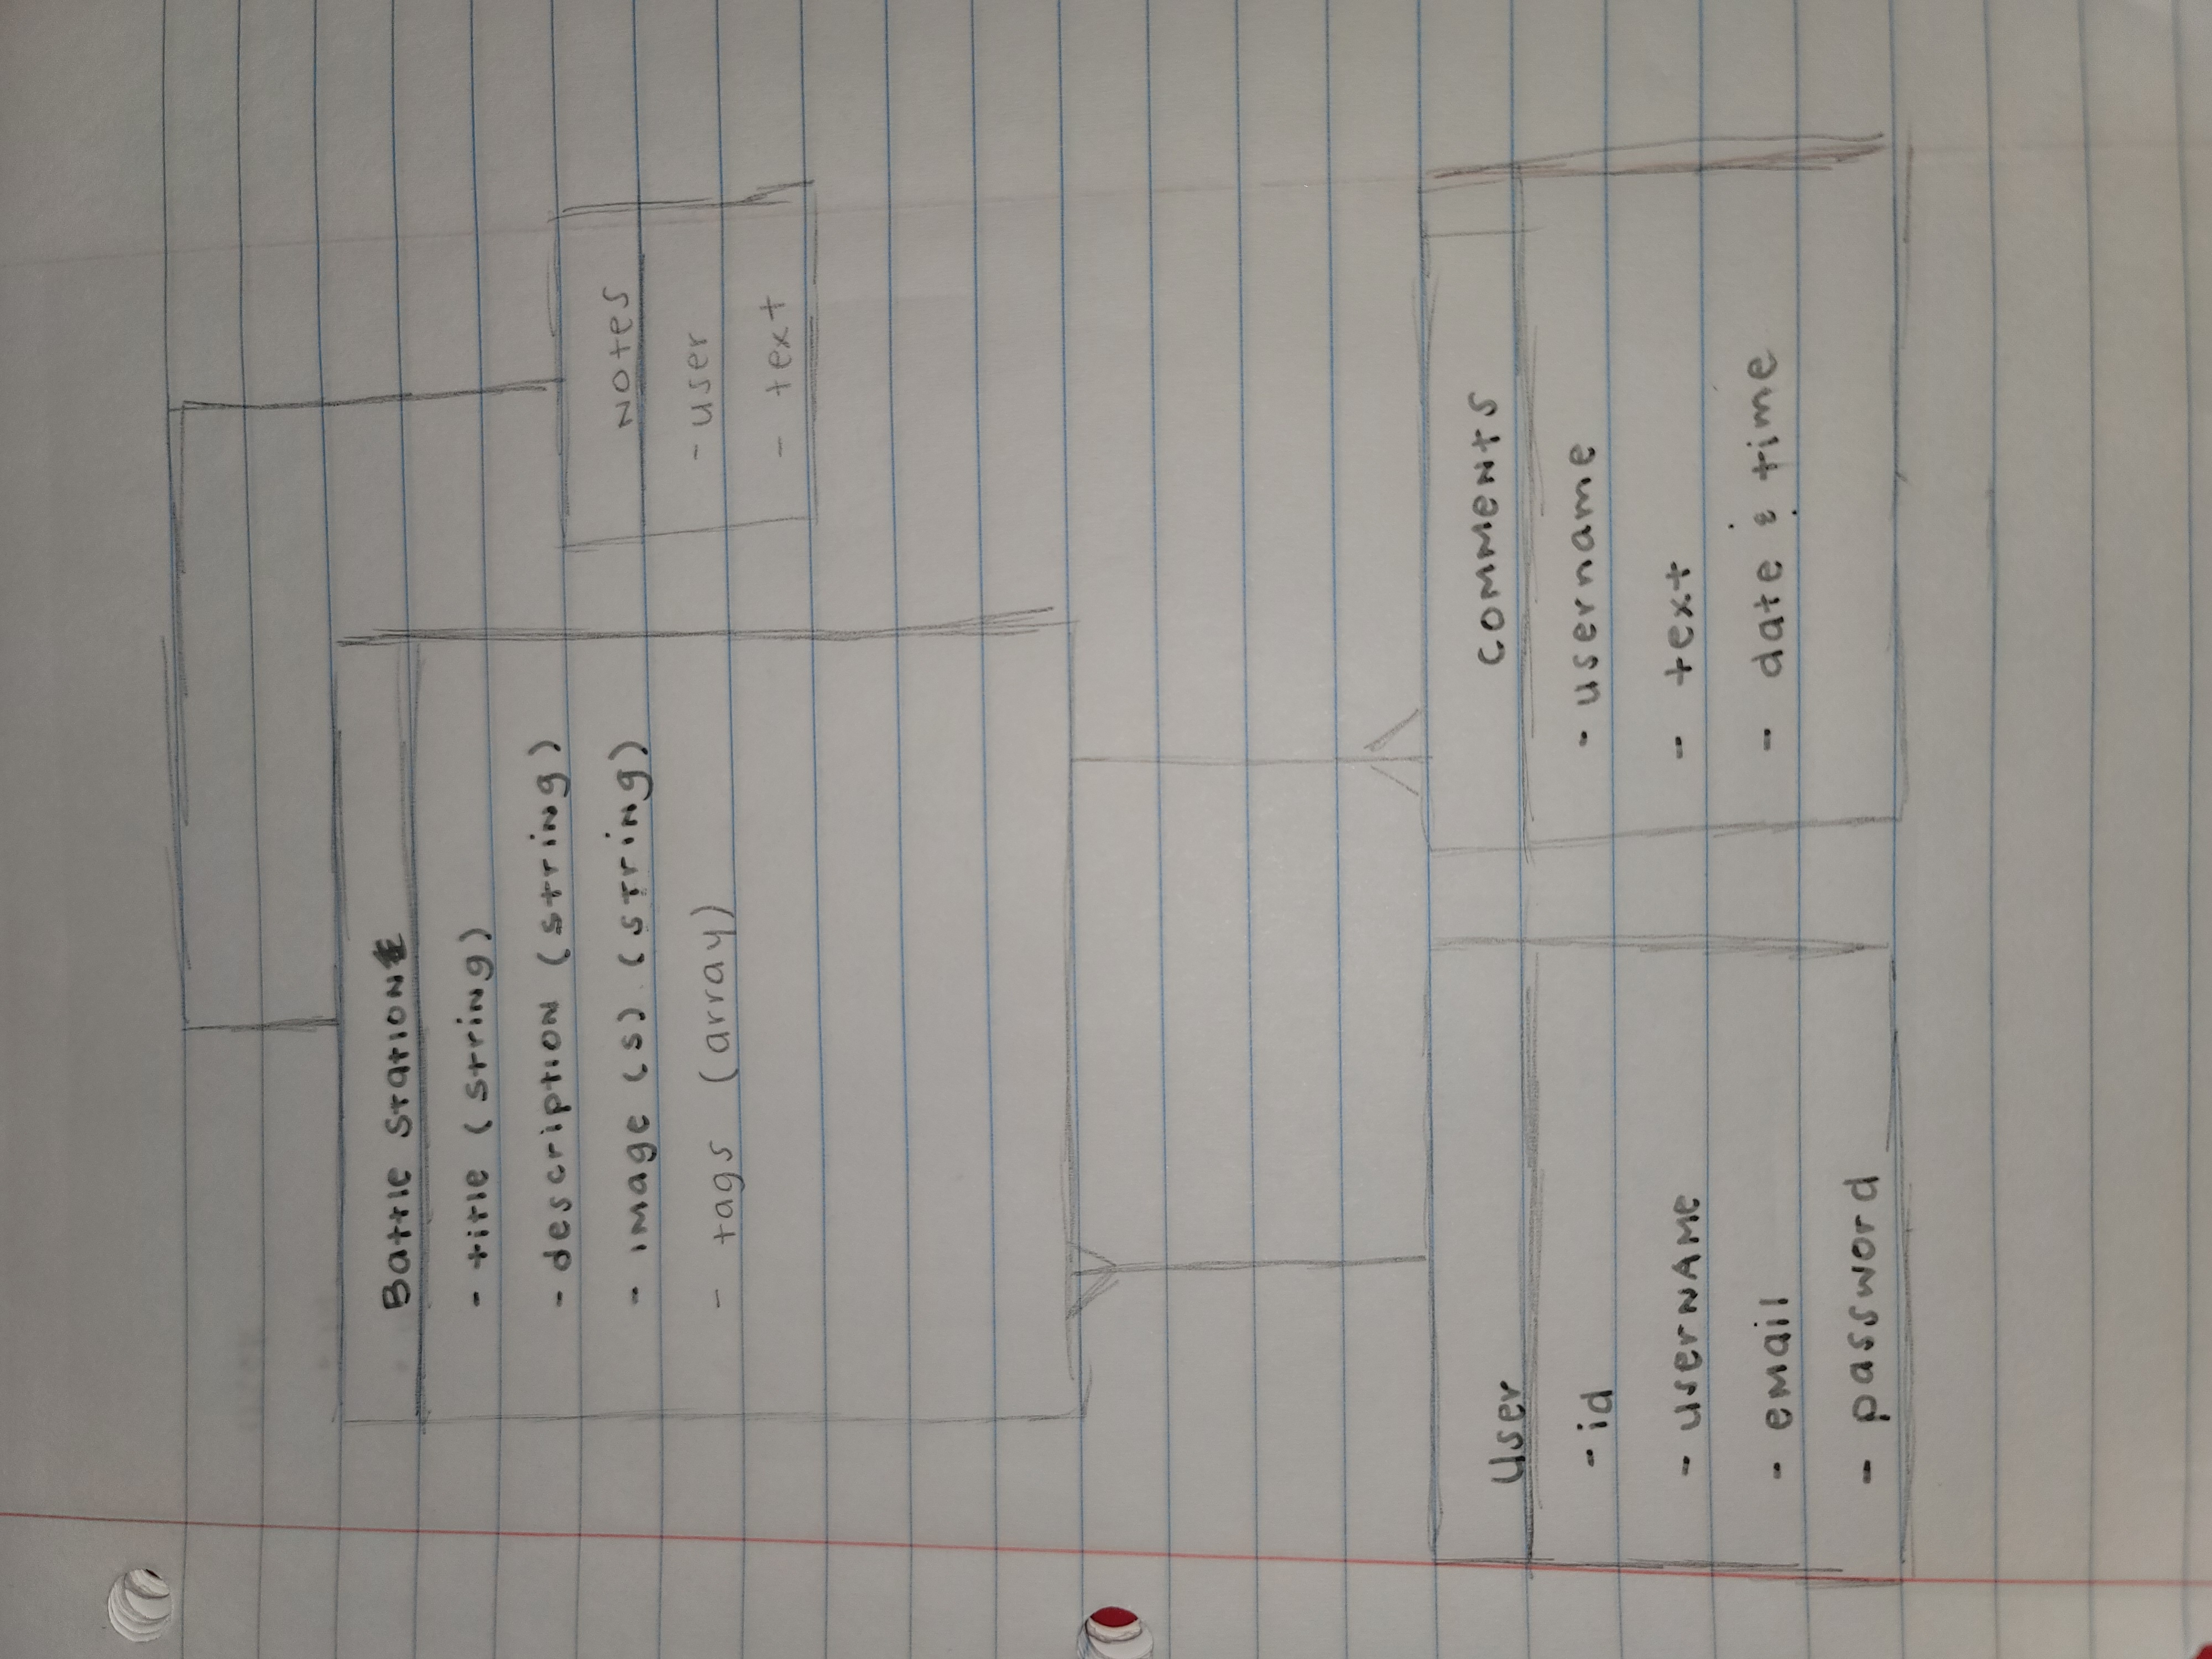 Battle Station
- title (string)
- description (string)
- image (s) (string)
- tags (array)
Notes
- user
- text
User
- id
- username
- email
- password
comments
- username
- text
- date & time